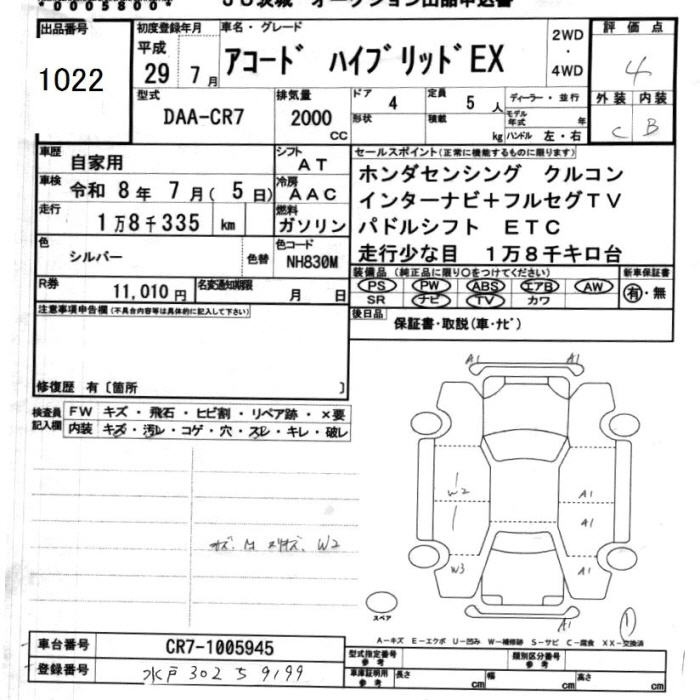 *0005800*
JU茨城 オークション出品申込書
出品番号 1022
初度登録年月 平成 29年 7月
車名・グレード アコード ハイブリッドEX
2WD ・ 4WD
評価点 4
型式 DAA-CR7
排気量 2000 CC
ドア 4
定員 5人
ディーラー・並行
外装 C
内装 B
形状
積載 kg
モデル年式 年
ハンドル 左・右
車歴 自家用
シフト AT
セールスポイント(正常に機能するものに限ります)
車検 令和 8年 7月(5日)
冷房 AAC
ホンダセンシング クルコン
インターナビ+フルセグTV
走行 1万8千335 km
燃料 ガソリン
パドルシフト ETC
色 シルバー
色替
色コード NH830M
走行少な目 1万8千キロ台
装備品(純正品に限り○をつけてください)
新車保証書
PS PW ABS エアB AW
有・無
SR ナビ TV カワ
R券 11,010円
名変通知期限 月 日
後日品 保証書・取説(車・ナビ)
注意事項申告欄(不具合内容等は具体的に記入して下さい)
修復歴 有〔箇所 〕
検査員記入欄
FW キズ・飛石・ヒビ割・リペア跡・×要
内装 キズ・汚レ・コゲ・穴・スレ・キレ・破レ
A1 A1
W2 A1
A1
W3 A1
W2
A1
①
スペア
A-キズ E-エクボ U-凹み W-補修跡 S-サビ C-腐食 XX-交換済
車台番号 CR7-1005945
登録番号 水戸 302 ち 9199
型式指定番号 参考
類別区分番号 参考
車庫証明用 参考
長さ cm 幅 cm 高さ cm